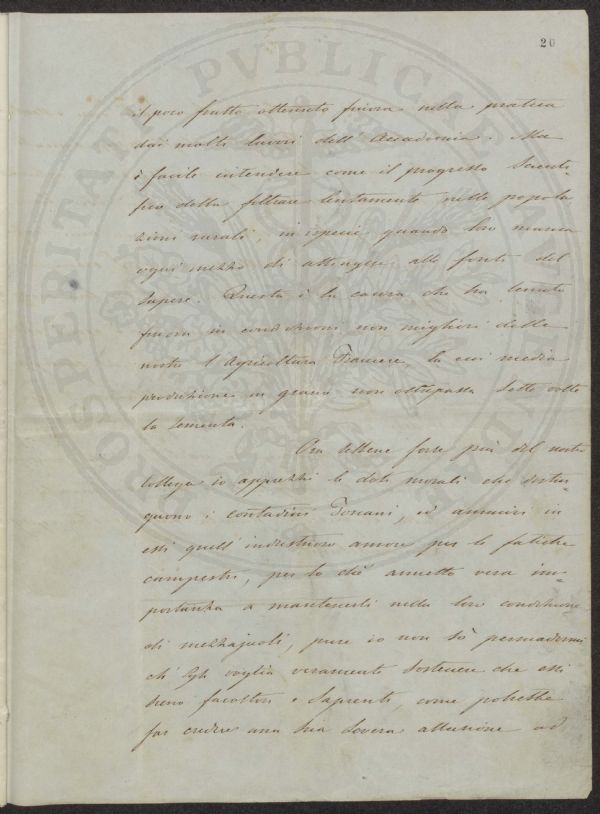 20
il poco frutto ottenuto finora nella pratica
dai molti lavori dell' Accademia. Ma
è facile intendere come il progresso scienti-
fico debba filtrare lentamente nelle popola
zioni rurali, in ispecie quando loro manca
ogni mezzo di attingere alla fonte del
Sapere. Questa è la causa che ha tenuto
finora in condizioni non migliori delle
nostre l'Agricoltura Francese, la cui media
produzione in grano non oltrepassa sette volte
la sementa.
Ora sebbene forse più del nostro
Collega io apprezzi le doti morali che distin-
guono i contadini Toscani, ed ammiri in
essi quell' industrioso amore per le fatiche
campestri, per lo chè annetto vera im-
portanza a mantenerli nella loro condizione
di mezzajuoli, pure io non sò persuadermi
ch' Egli voglia veramente sostenere che essi
sieno facoltosi e Sapienti, come potrebbe
far credere una sua severa allusione ad
PROSPERITATI PVBLICAE AVGENDAE